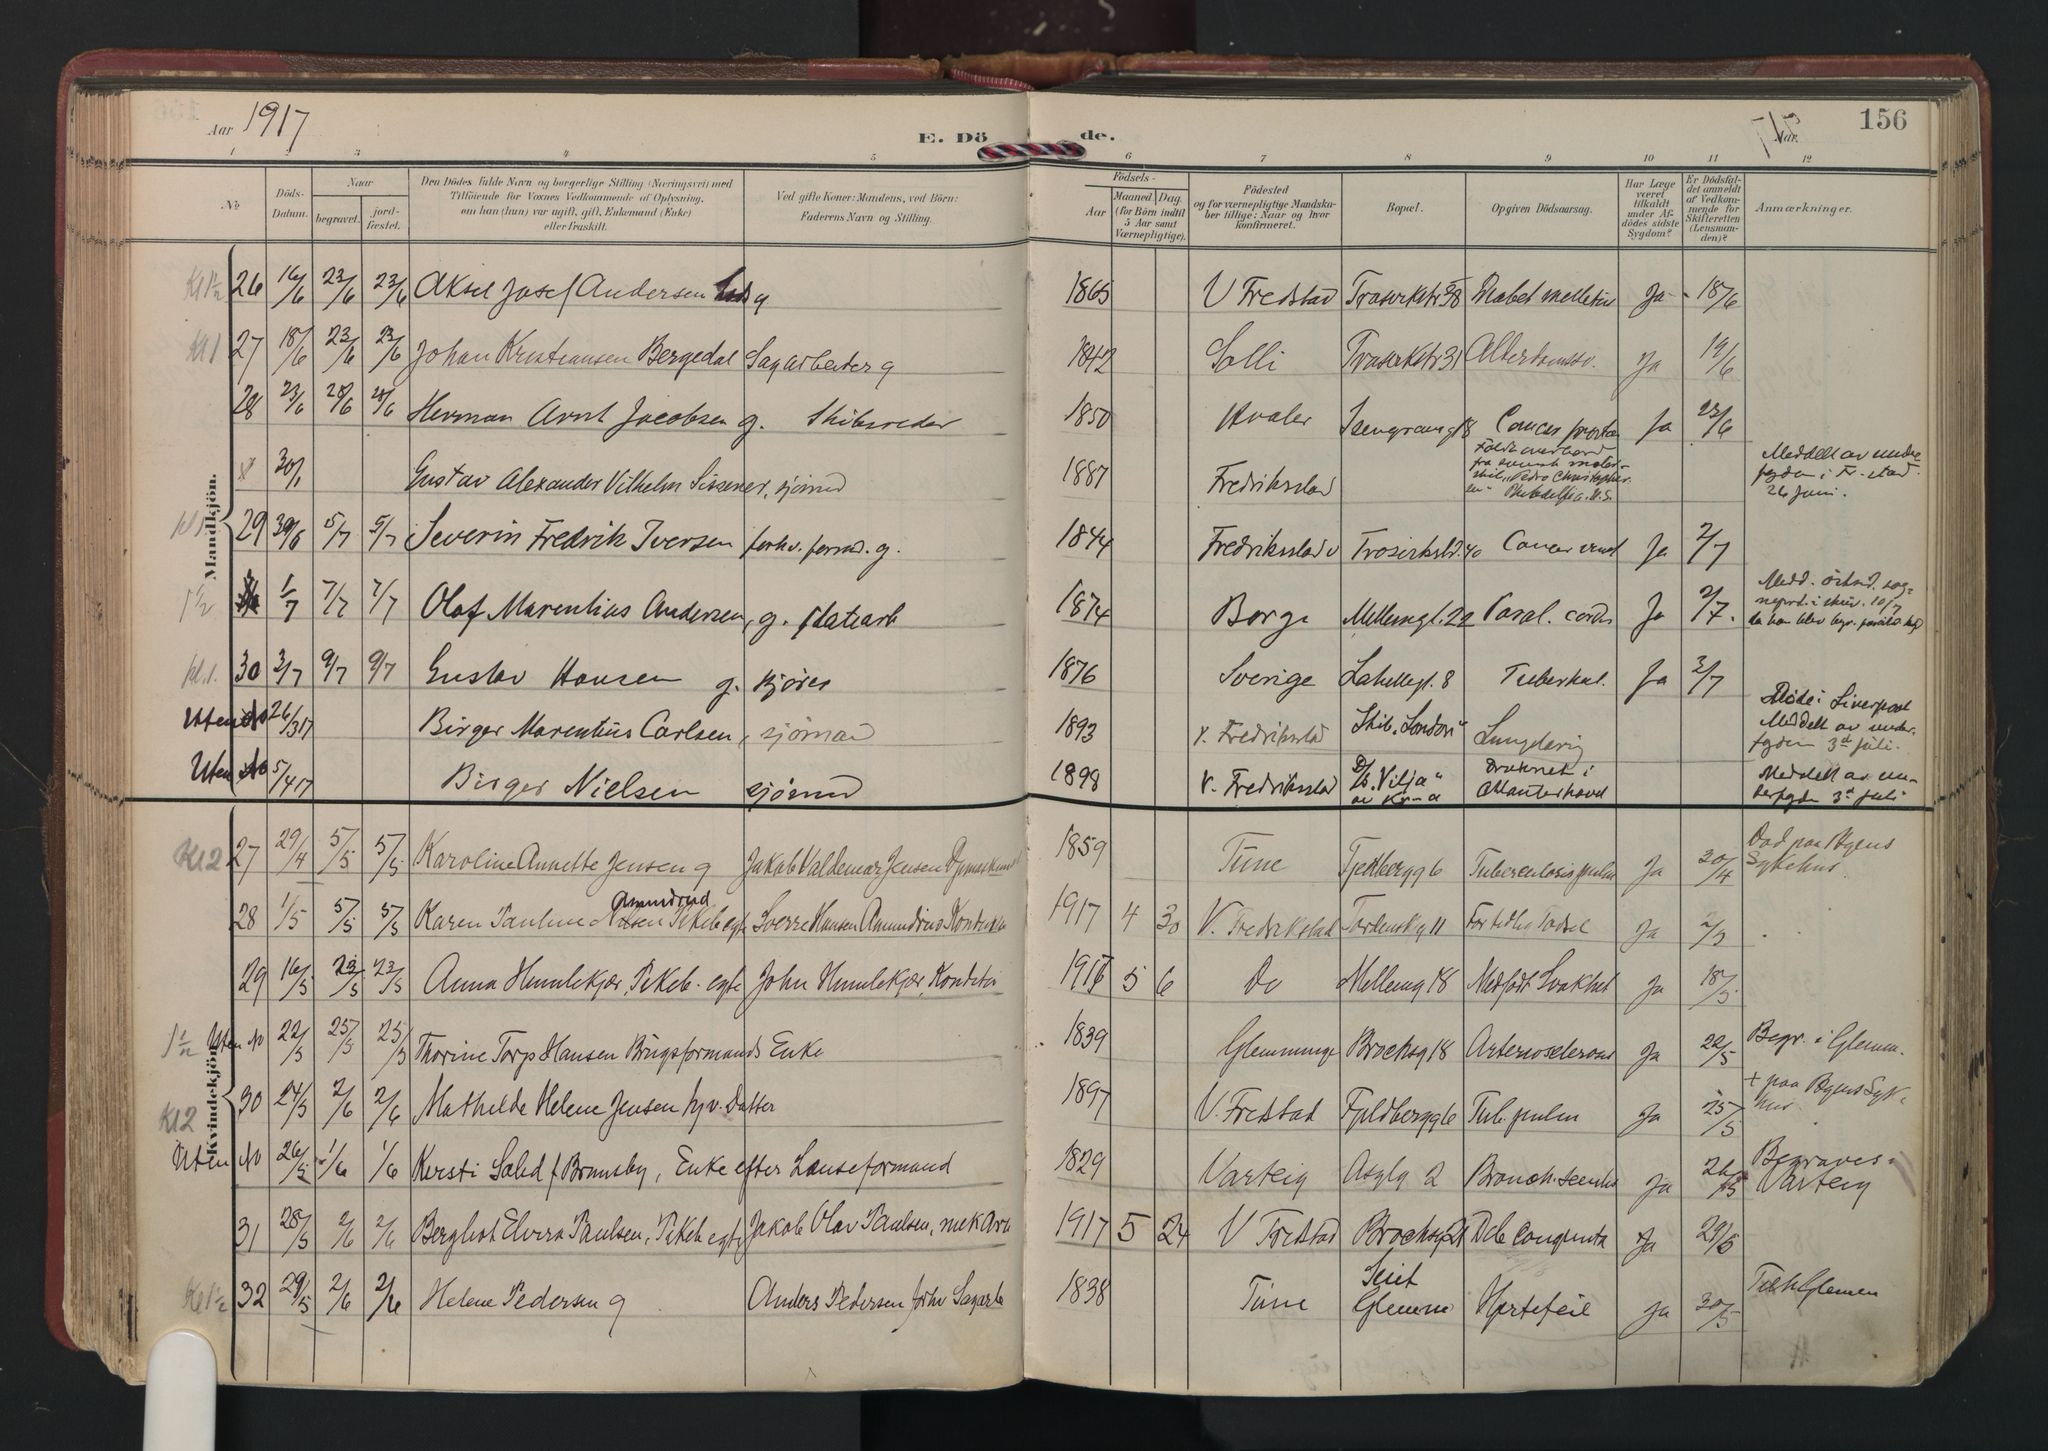 Aar 1917 E. Dö de. Aar. 156
1 2 3 4 5 6 7 8 9 10 11 12
No Döds-Datum. Naar begravet. jord-fæstet. Den Dödes fulde Navn og borgerlige Stilling (Næringsvei) med Tilföiende for Voxnes Vedkommende af Oplysning, om han (hun) var ugift, gift, Enkemand (Enke) eller fraskilt. Ved gifte Koner: Mandens, ved Börn: Faderens Navn og Stilling. Födsels- Aar Maaned Dag. (for Börn indtil 5 Aar samt Værnepligtige). Födested og for værnepligtige Mandskaber tillige: Naar og hvor konfirmeret. Bopæl. Opgiven Dödsaarsag. Har Læge veret tilkaldt under Afdödes sidste Sygdom? Er Dödsfaldet anmeldt af Vedkommende for Skifteretten (Lensmanden)? Anmærkninger.
Mandkjön.
26 16/6 23/6 23/6 Aksel Josef Andersen g 1865 V Fredstad Trosvikstr 58 Diabet mellitus Ja 18/6
Kl 1 27 18/6 23/6 23/6 Johan Kristiansen Bergedal Sagarbeider g 1842 Solli Trosvikstr 31 Alderdomssv. Ja 19/6
28 23/6 28/6 28/6 Herman Arnt Jacobsen g. Skibsreder 1850 Hvaler Isengrang 18 Cancer Ja 23/6
30/1 Gustav Alexander Vilhelm Sissener, sjömd 1887 Fredriksstad Faldt overbord fra svensk motorskib "Pedro Christophersen" Philadelfia. U.S. Meddelt av underfogden i Fr-stad 26 juni.
kl 1 29 30/6 5/7 5/7 Severin Fredrik Iversen forhv. formd. g. 1844 Fredriksstad v Trosvikstr. 40 Cancer Ja 2/7
1 1/2 1/7 7/7 7/7 Olof Marentius Andersen, g. 1874 Borge Mellemgt. 22 Paral. cordis Ja 2/7.
kl. 1. 30 3/7 9/7 9/7 Gustav Hansen g. sjöms 1876 Sverige Lahellegt. 8 Tuberkul. Ja 3/7
Uten No 26/3 17 Birger Marentius Carlsen, sjömand 1893 v. Fredriksstad Skib "London" Död i Liverpool Meddelt av underfogden 3d juli.
Uten No 5/4 17 Birger Nielsen sjömd 1898 V. Fredriksstad D/s. "Vilja" av Kr.a Druknet i Atlanterhavet Meddelt av underfogden 3d juli
Kvindekjön.
Kl 2 27 29/4 5/5 5/5 Karoline Annette Jensen g Jakob Valdemar Jensen 1859 Tune Fjeldbergg 6 Tuberculosis pulm Ja 30/4 Död paa Byens Sykehus
28 1/5 5/5 5/5 Karen Pauline Amundrud Pikeb egte Sverre Hansen Amundrud 1917 4 30 V. Fredrikstad Tordenskg 11 For tidlig födsel Ja 2/5
29 16/5 23/5 23/5 Anna Humlekjær, Pikeb. egte John Humlekjær, Konditor 1916 5 6 Do Mellemg 18 Medfödt Svakhet Ja 18/5
1 1/2 Uten No 22/5 25/5 25/5 Thorine Torp Hansen Brugsformands Enke 1839 Glemminge Brochsg 18 Arteriosclerose Ja 22/5 Begr. i Glemm.
Kl 2 30 24/5 2/6 2/6 Mathilde Helene Jensen hjv. Datter 1897 V. Fredstad Fjeldbergg 6 Tub. pulm Ja 25/5 + paa Byens Sykehus
Uten No 26/5 1/6 1/6 Kersti f Brunsby, Enke efter Lenseformand 1829 Varteig Asylg 2 Bronch. senilis Ja 26/5 Begraves. Varteig
31 28/5 2/6 2/6 Bergliot Elvira Paulsen, Pikeb egte Jakob Olav Paulsen, mek Arb 1917 5 24 V Fredstad Brochsg 21 Deb congenita Ja 29/5
Kl 1 1/2 32 29/5 2/6 2/6 Helene Pedersen g Anders Pedersen forhv Sagarb 1838 Tune Seiet Glemme Hjertefeil Ja 30/5 Tilh Glemmen